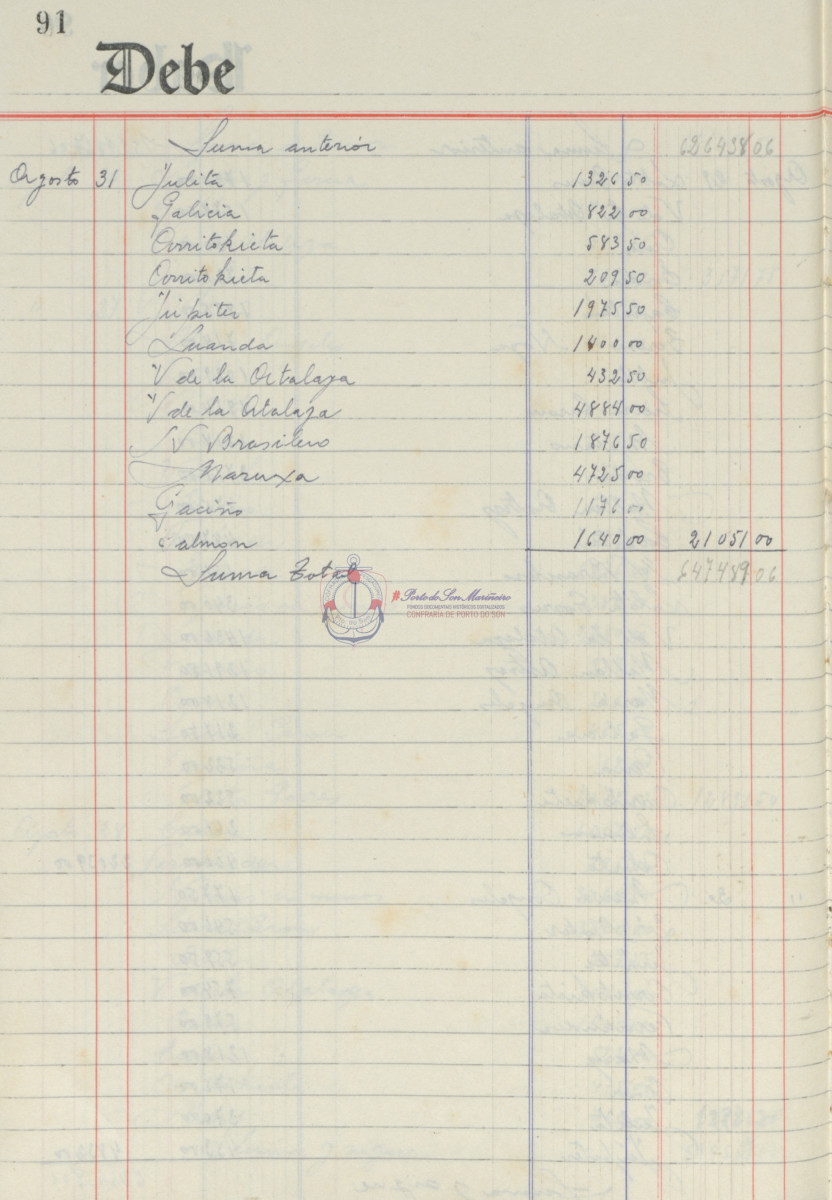 91
Debe
Suma anterior 626438 06
Agosto 31 Julita 1326 50
Galicia 822 00
Orritokieta 583 50
Orritokieta 209 50
Júpiter 1975 50
Luanda 1400 00
V de la Atalaya 432 50
V de la Atalaya 4884 00
N Brasileiro 1876 50
Maruxa 4725 00
Gaciño 1176 00
Salmon 1640 00 21051 00
Suma Total 647489 06
#PortodoSonMariñeiro
FONDOS DOCUMENTAIS HISTÓRICOS DIXITALIZADOS
CONFRARÍA DE PORTO DO SON